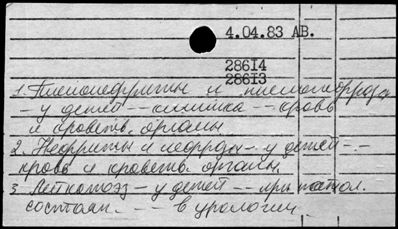 4.04.83 АВ.
28614
28613
1. Пиелонефриты и пиелонефроза
- у детей -- клиника -- кровь
и кроветв. органы
2. Нефриты и нефрозы - у детей --
кровь и кроветв. органы.
3. Лейкотоэз - у детей -- при патол.
состоян. -- в урологии.